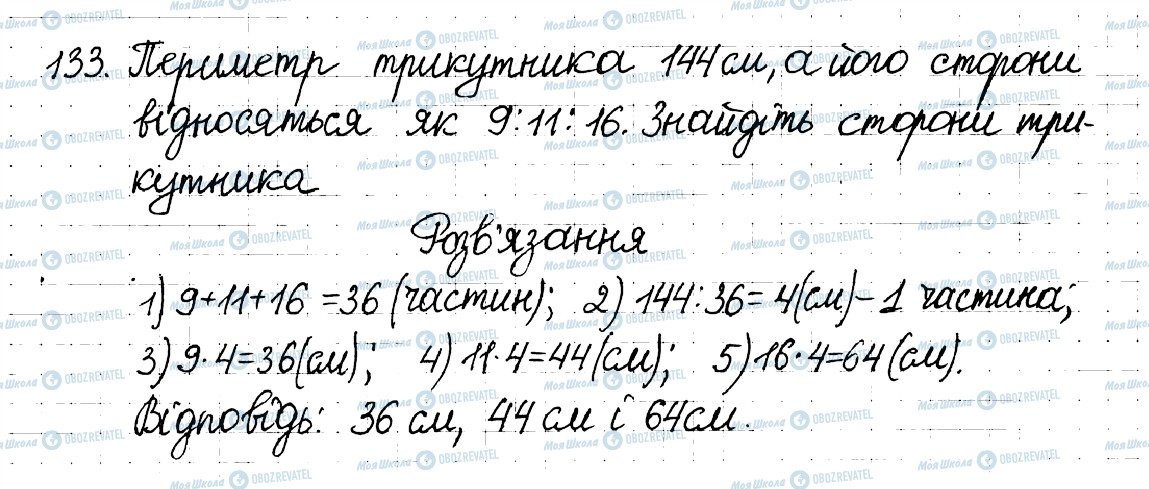 133. Периметр трикутника 144 см, а його сторони
відносяться як 9:11:16. Знайдіть сторони три-
кутника
Розв'язання
1) 9+11+16 =36 (частин); 2) 144:36= 4(см)-1 частина;
3) 9·4=36(см); 4) 11·4=44(см); 5) 16·4=64(см).
Відповідь: 36 см, 44 см і 64см.